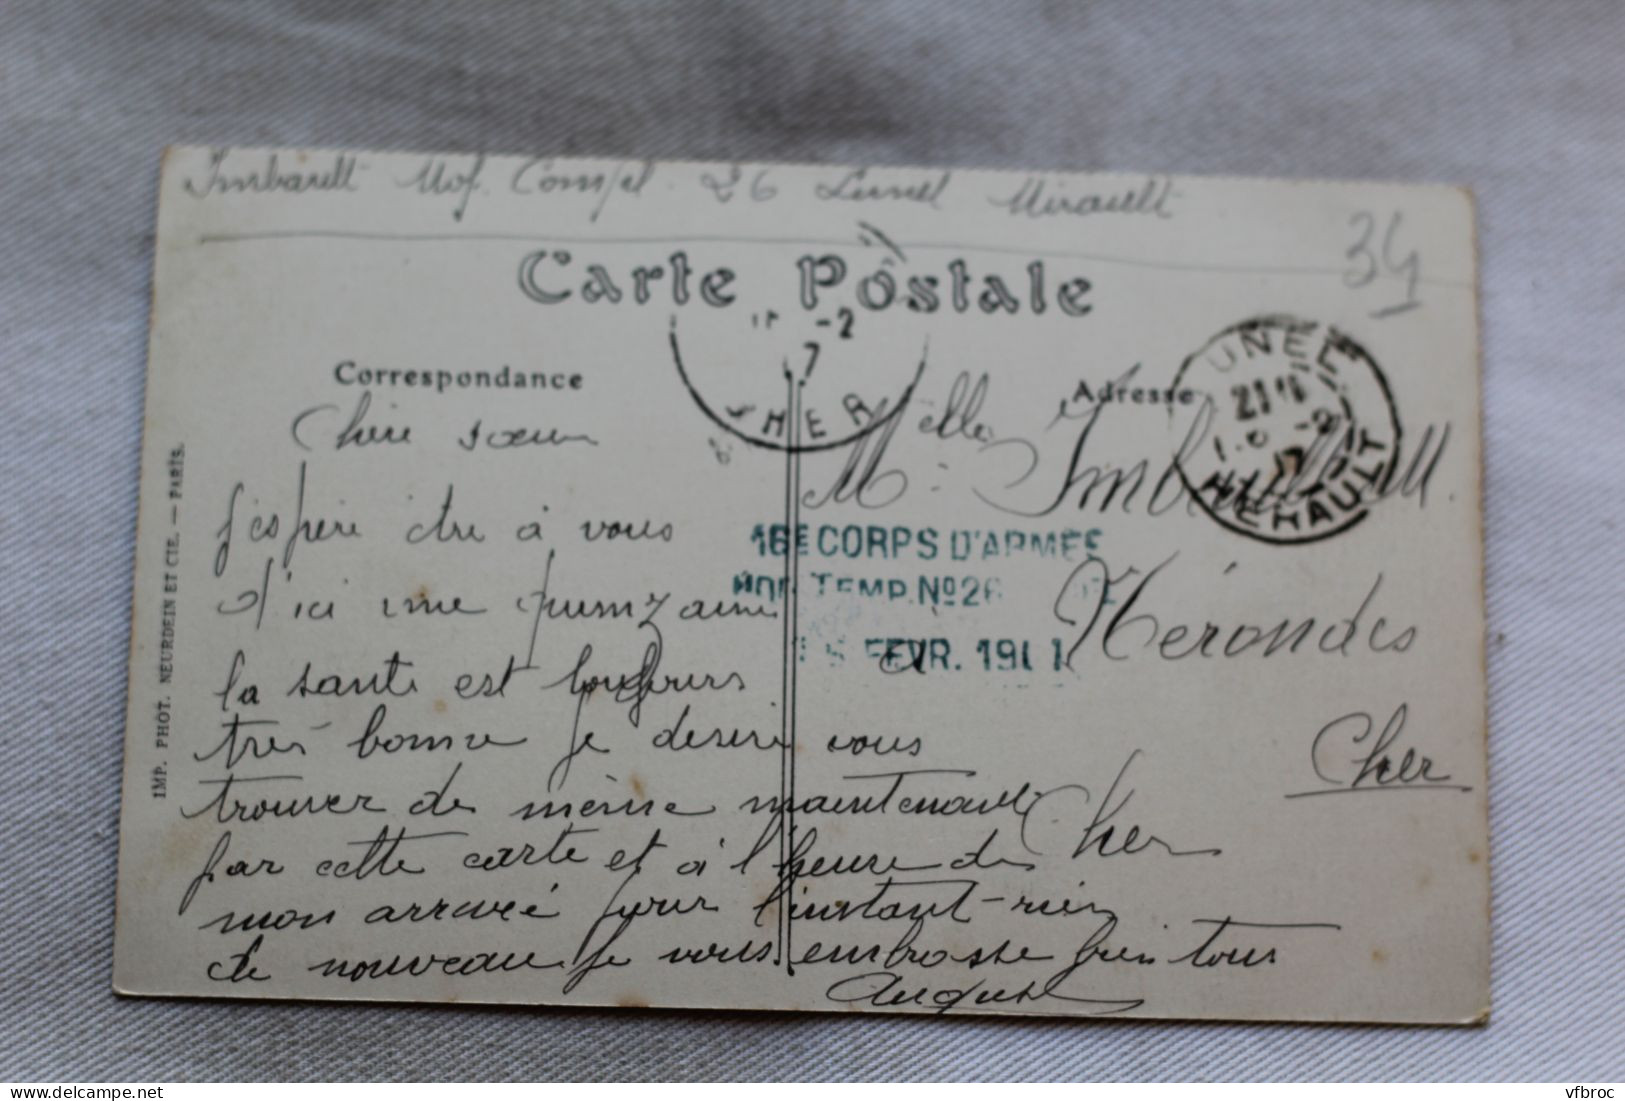 Imbault Hop. Compl. 26 Lunel Hérault
34
Carte Postale
-2
7
CHER
Correspondance
Adresse
UNEL
21
16 -2
17
HÉRAULT
Chère sœur
j'espère être à vous
d'ici une quinzaine
la santé est toujours
très bonne je desire vous
trouver de même maintenant
par cette carte et à l'heure de
mon arrivé pour l'instant rien
de nouveau je vous embrasse bien tous
August
Melle Imbault
16E CORPS D'ARMÉE
HOP. TEMP. No26
FEVR. 191
à Nérondes
Cher
Cher
IMP. PHOT. NEURDEIN ET CIE. — PARIS.
vfbroc